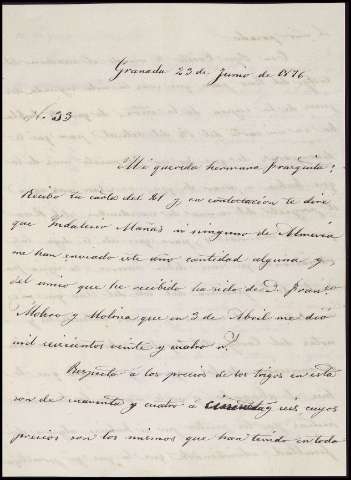 Granada 23 de Junio de 1876
N. 33
Mi querida hermana Frasquita:
Recibo tu carta del 21 y en contestacion te dire
que Indalecio Mañas ni ninguno de Almeria
me han enviado este año cantidad alguna y
del unico que he recibido ha sido de D. Franco
Molero y Molina que en 3 de Abril me dió
mil seiscientos veinte y cuatro r.s
Respecto a los precios de los trigos en esta
son de cuarenta y cuatro á cincuenta y seis cuyos
precios son los mismos que han tenido en todo